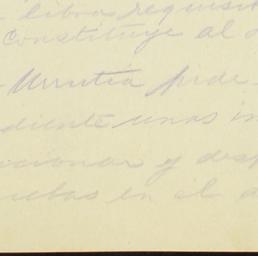 libros requisit
Constituye al
Urrutia pide
diente unos in
cionar y desp
uebas en el